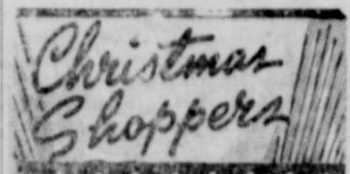 Christmas
Shoppers